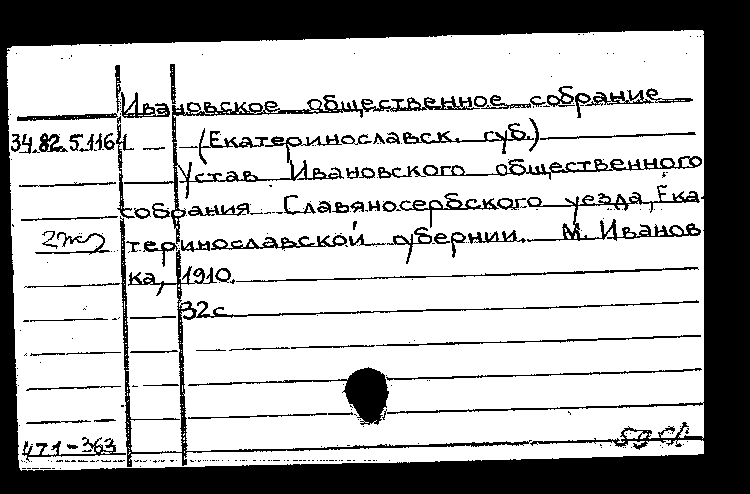 Ивановское общественное собрание
34.82.5.1164 (Екатеринославск. губ.)
Устав Ивановского общественного
собрания Славяносербского уезда, Ека-
теринославской губернии. М. Иванов
ка, 1910.
32 с
471-363